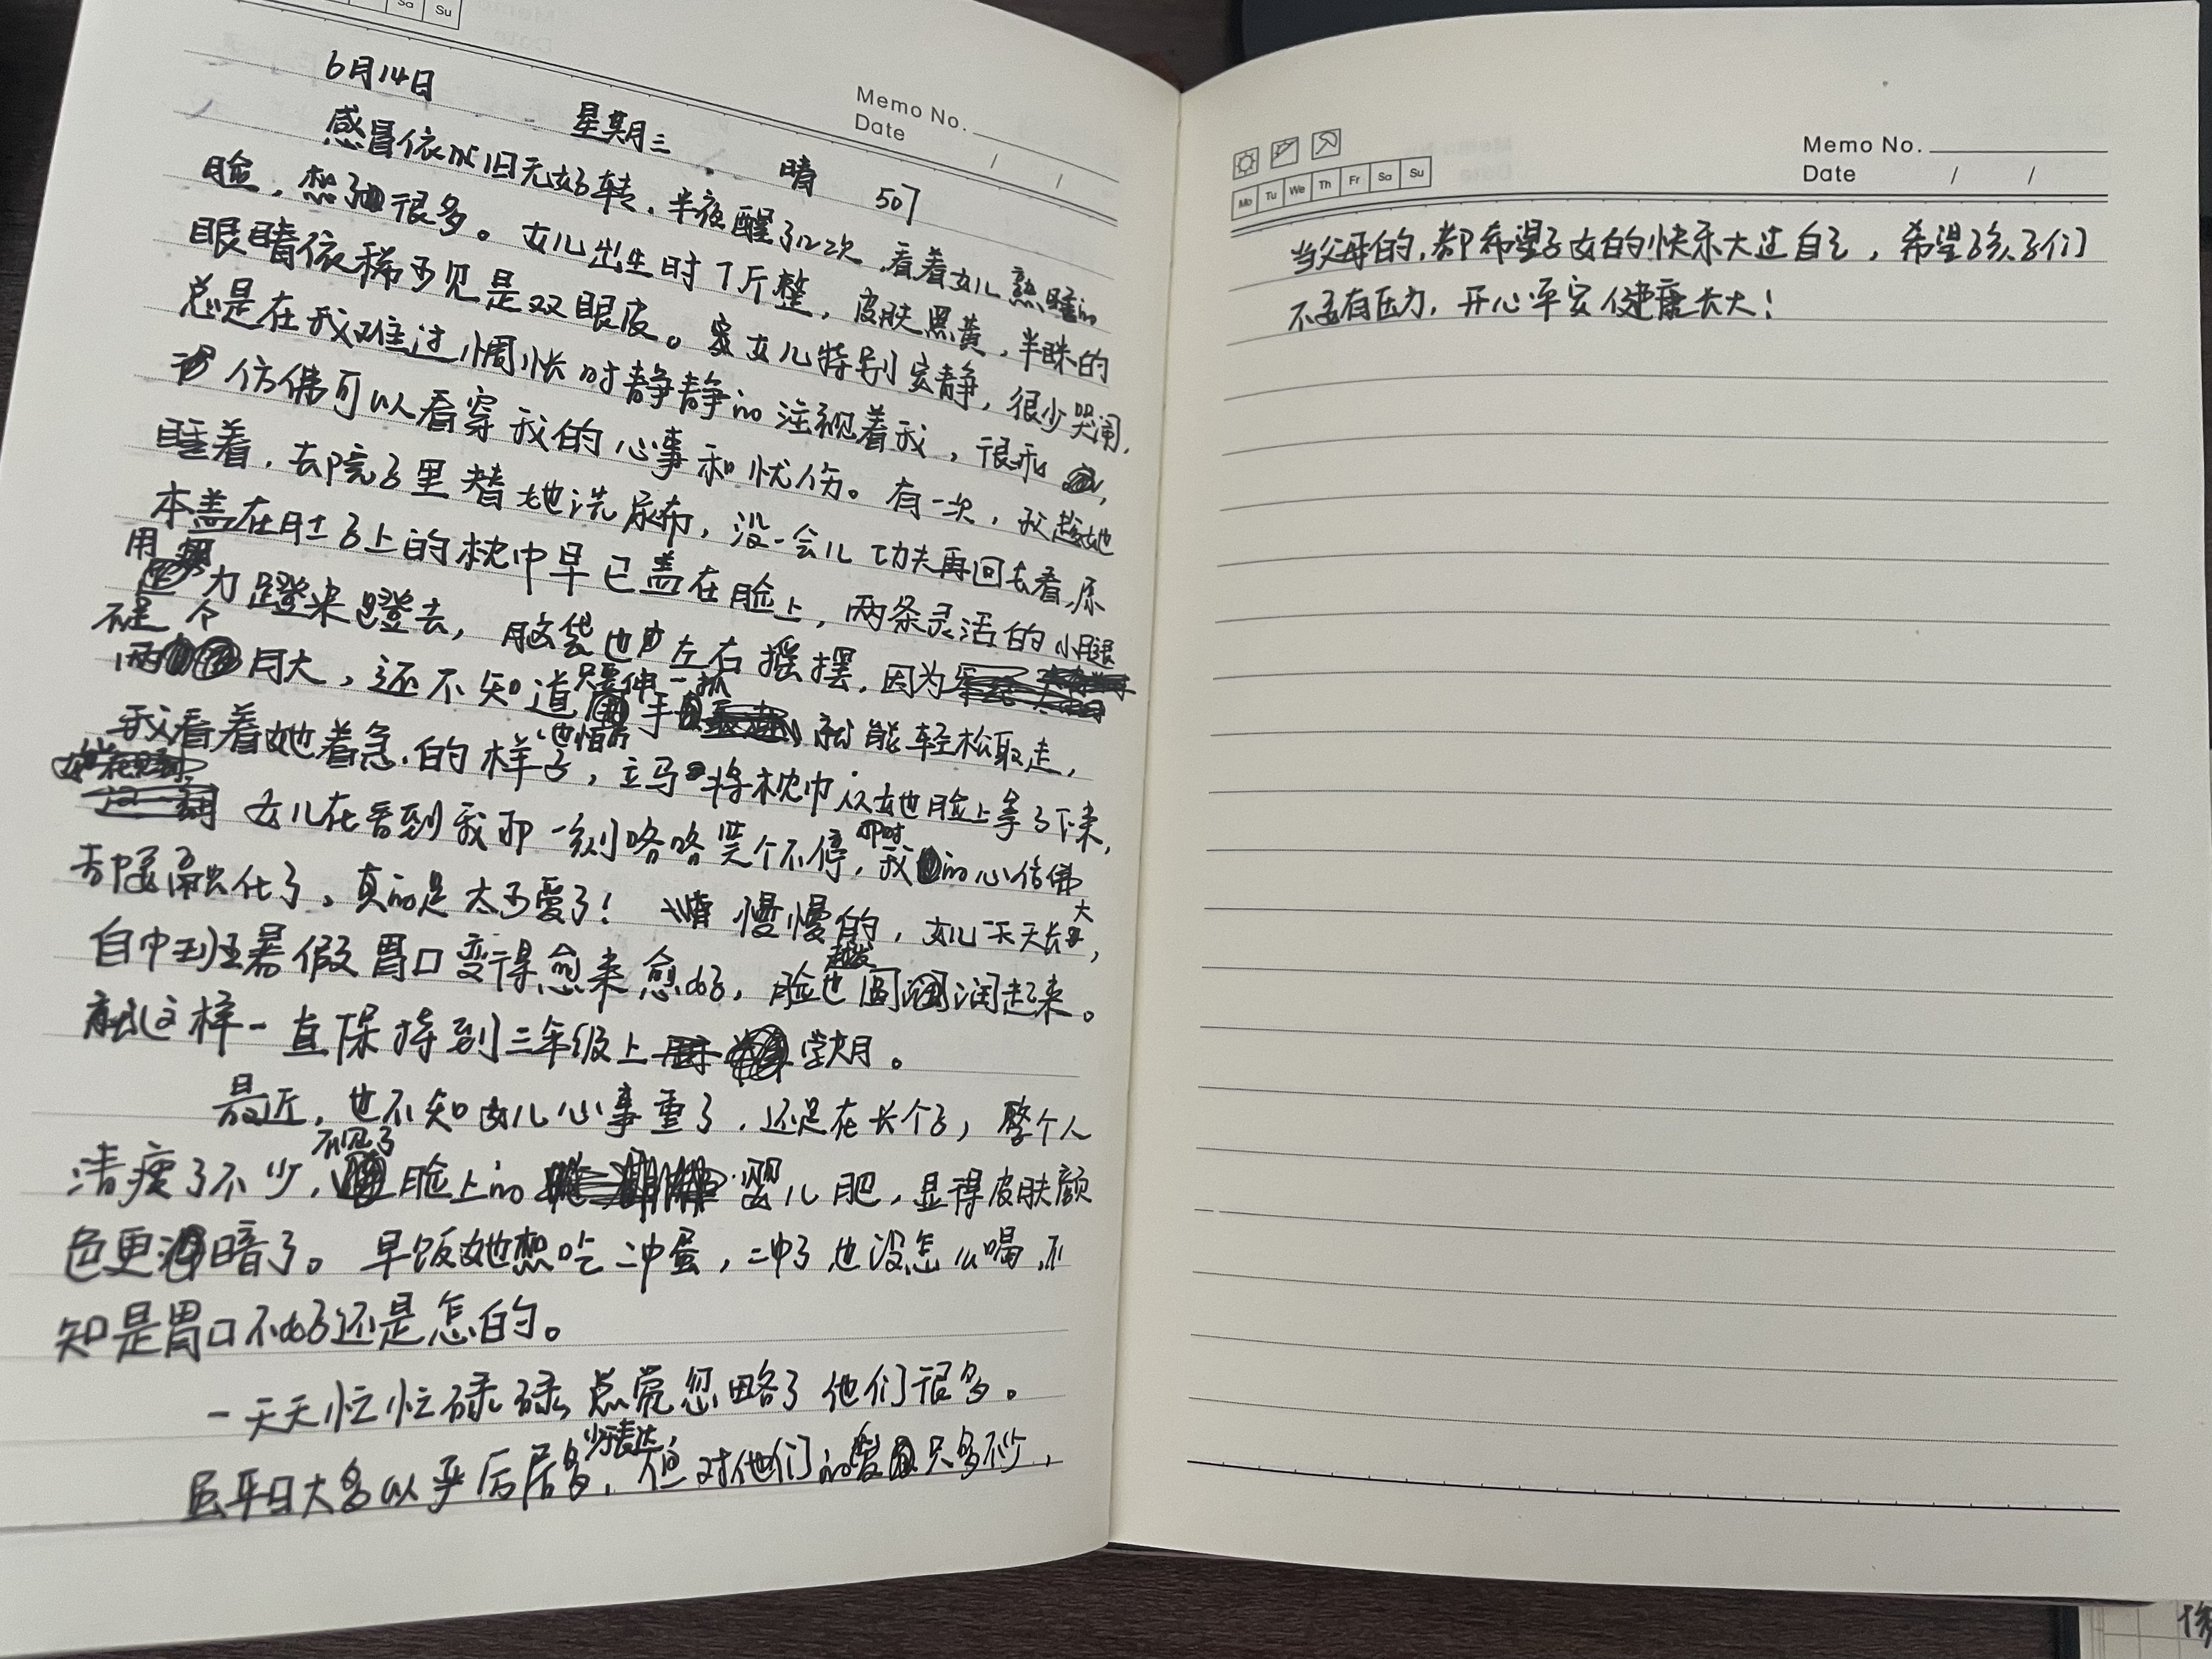 Sa Su
Memo No.
Date / /
6月14日 星期三 晴 507
感冒依然旧无好转，半夜醒了几次，看着女儿熟睡的
脸，想了很多。女儿出生时7斤整，皮肤黑黄，半眯的
眼睛依稀可见是双眼皮。女儿特别安静，很少哭闹，
总是在我难过惆怅时静静的注视着我，很乖，
仿佛可以看穿我的心事和忧伤。有一次，我趁她
睡着，去院子里替她洗尿布，没一会儿功夫再回去看，原
本盖在肚子上的枕巾早已盖在脸上，两条灵活的小腿
用力蹬来蹬去，脑袋也左右摇摆，因为
不足两个月大，还不知道只要伸手一抓就能轻松取走，
我看着她着急的样子，立马将枕巾从她脸上拿了下来，
女儿在看到我那一刻咯咯笑个不停，那时我的心仿佛
都要融化了，真的是太可爱了！慢慢的，女儿一天天长大，
自中到班暑假胃口变得愈来愈好，脸也越发圆润起来。
就这样一直保持到三年级上学期。
最近，也不知女儿心事重了，还是在长个子，整个人
清瘦了不少，不见了脸上的婴儿肥，显得皮肤颜
色更暗了。早饭她想吃冲蛋，冲了也没怎么喝，不
知是胃口不好还是怎的。
一天天忙忙碌碌总觉忽略了他们很多。
平日大多以严厉居多，少于表达，但对他们的爱只多不少，
Mo Tu We Th Fr Sa Su
Memo No.
Date / /
当父母的，都希望子女的快乐大过自己，希望孩子们
不要有压力，开心平安健康长大！